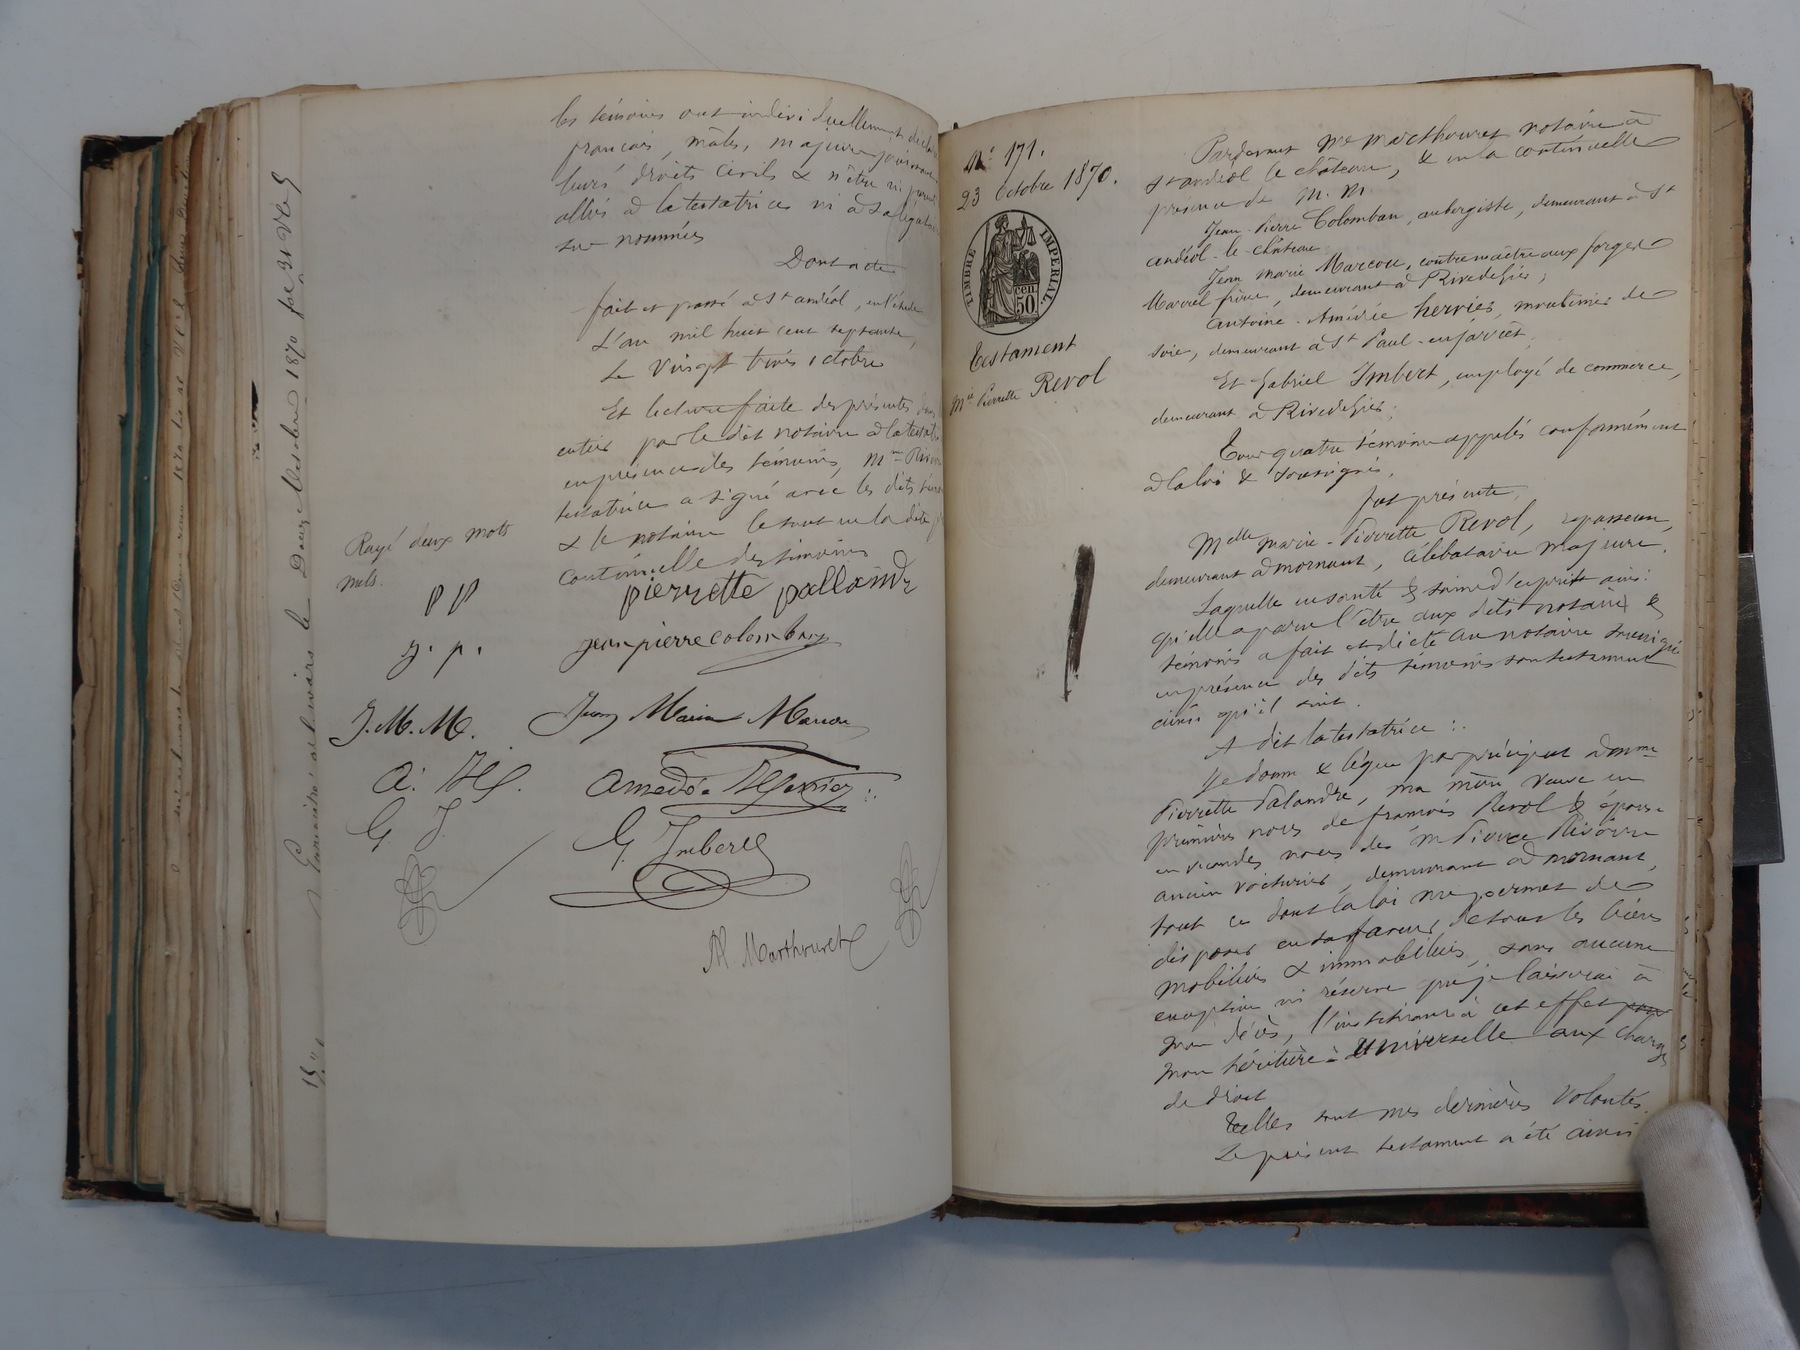 les témoins ont individuellement
français, mâles, majeurs, jouissant
leurs droits civils & n'être ni
alliés à la testatrice ni à sa
sus nommés
Dont acte
fait et passé à St andéol, en l'étude
L'an mil huit cent septante,
Le Vingt trois octobre
Et lecture faite des présentes
entier par le dit notaire à la
en présence des témoins, Mme
testatrice a signé avec les dits
& le notaire le tout en la dite
continuelle des témoins
Rayé deux mots
nuls.
p p pierrette pallandre
j. p. jean pierre colomban
J. M. M. Jean Marie Marcou
a. H. amédée
G. J. G. Imbert
M. Marthouret
1870
No 171.
23 octobre 1870.
TIMBRE IMPERIAL.
50 cen.
Testament
Mie Pierrette Revol
Pardevant Me Marthouret notaire à
St andéol le château, & en la continuelle
présence de M.M.
Jean-Pierre Colomban, aubergiste, demeurant à St
andéol-le-château
Jean Marie Marcou, contremaître aux forges
Marrel frères, demeurant à Rivedegier;
Antoine-Amédée hervier, moulinier de
soie, demeurant à St Paul-en-jarrêt,
Et Gabriel Imbert, employé de commerce,
demeurant à Rivedegier;
Tous quatre témoins appelés conformément
à la loi & soussignés,
fut présente,
Melle Marie-Pierrette Revol, repasseuse,
demeurant à Mornant, célibataire majeure.
Laquelle en santé & saine d'esprit ainsi
qu'elle a paru l'être aux dits notaire &
témoins a fait et dicté au notaire soussigné
en présence des dits témoins son testament
ainsi qu'il suit.
A dit la testatrice :.
Je donne & lègue par préciput à Dme
Pierrette Palandre, ma mère veuve en
premières noces de françois Revol & épouse
en secondes noces de M Pierre Rivoire
ancien voiturier, demeurant à Mornant,
tout ce dont la loi me permet de
disposer en sa faveur de tous les biens
mobiliers & immobiliers, sans aucune
exception ni réserve que je laisserai à
mon décès, l'instituant à cet effet pour
mon héritière universelle aux charges
de droit
Telles sont mes dernières volontés.
Le présent testament a été ainsi